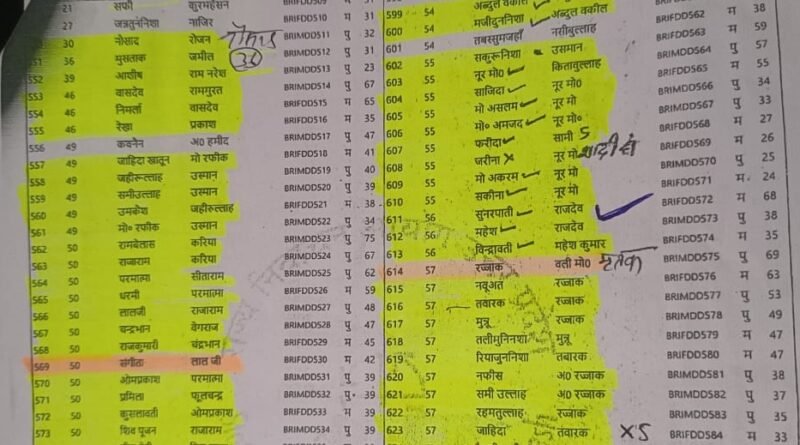 21 सफी कुरमहसन BRIFDD509
27 जन्नतुननिशा नाजिर BRIFDD510 म 31
30 नोसाद रोजन BRIMDD511 पु 32
551 36 मुसताक जमील 36 BRIMDD512 पु 31
552 39 आशीष राम नरेश BRIMDD513 पु 23
553 46 वासदेव रामगुरत BRIMDD514 पु 67
554 46 निर्मला वासदेव BRIFDD515 म 65
555 46 रेखा प्रकाश BRIFDD516 म 35
556 49 कवनैन अ0 हमीद BRIMDD517 पु 47
557 49 जाहिदा खातून मो रफीक BRIFDD518 म 41
558 49 जहीरूल्लाह उस्मान BRIMDD519 पु 40
559 49 समीउल्लाह उस्मान BRIMDD520 पु 39
560 49 उमकेश जहीरूल्लाह BRIFDD521 म 38
561 49 मो० रफीक उस्मान BRIMDD522 पु 34
562 50 रामबेलास करिया BRIMDD523 पु 75
563 50 राजाराम करिया BRIMDD524 पु 67
564 50 परमात्मा सीताराम BRIMDD525 पु 62
565 50 धरमी परमात्मा BRIFDD526 म 59
566 50 लालजी राजाराम BRIMDD527 पु 48
567 50 चन्द्रभान वेगराज BRIMDD528 पु 47
568 50 राजकुमारी चंद्रभान BRIFDD529 म 45
569 50 संगीता लाल जी BRIFDD530 म 42
570 50 ओमप्रकाश परमात्मा BRIMDD531 पु 39
571 50 प्रमिता फूलचन्द्र BRIMDD532 पु 39
572 50 कुसलावती ओमप्रकाश BRIFDD533 म 39
573 50 शिव पूजन राजाराम BRIMDD534 पु 39
599 54 अब्दुल वकील
600 54 मजीदुननिशा अब्दुल वकील BRIFDD562 म 38
601 54 तबस्सुमजहाँ नसीबुल्लाह BRIFDD563 म 59
602 55 सकुरूनिशा उसमान BRIMDD564 पु 57
603 55 नूर मो0 किताबुल्लाह BRIFDD565 म 55
604 55 साजिदा नूर मो BRIMDD566 पु 34
605 55 मो असलम नूर मो BRIMDD567 पु 33
606 55 मो० अमजद नूर मो० BRIFDD568 म 27
607 55 फरीदा सामी S BRIFDD569 म 26
608 55 जरीना x नूर मो शादी BRIMDD570 पु 25
609 55 मो अकरम नूर मो BRIFDD571 म 24
610 55 सकीना नूर मो BRIFDD572 म 68
611 56 सुनरपाती राजदेव BRIMDD573 पु 38
612 56 महेश राजदेव BRIFDD574 म 35
613 56 विन्द्रावती महेश कुमार BRIMDD575 पु 69
614 57 रज्जाक वली मो0 मृतक BRIFDD576 म 63
615 57 नवूअत रज्जाक BRIMDD577 पु 53
616 57 तवारक रज्जाक BRIMDD578 पु 49
617 57 मुन्नू रज्जाक BRIFDD579 म 47
618 57 तलीमुनिनशा मुन्नू BRIFDD580 म 47
619 57 रियाजुननिशा तबारक BRIMDD581 पु 38
620 57 नफीस अ0 रज्जाक BRIMDD582 पु 37
621 57 समी उल्लाह अ0 रज्जाक BRIMDD583 पु 35
622 57 रहमतुल्लाह रज्जाक BRIFDD584 म 33
623 57 जाहिदा तवारक XS